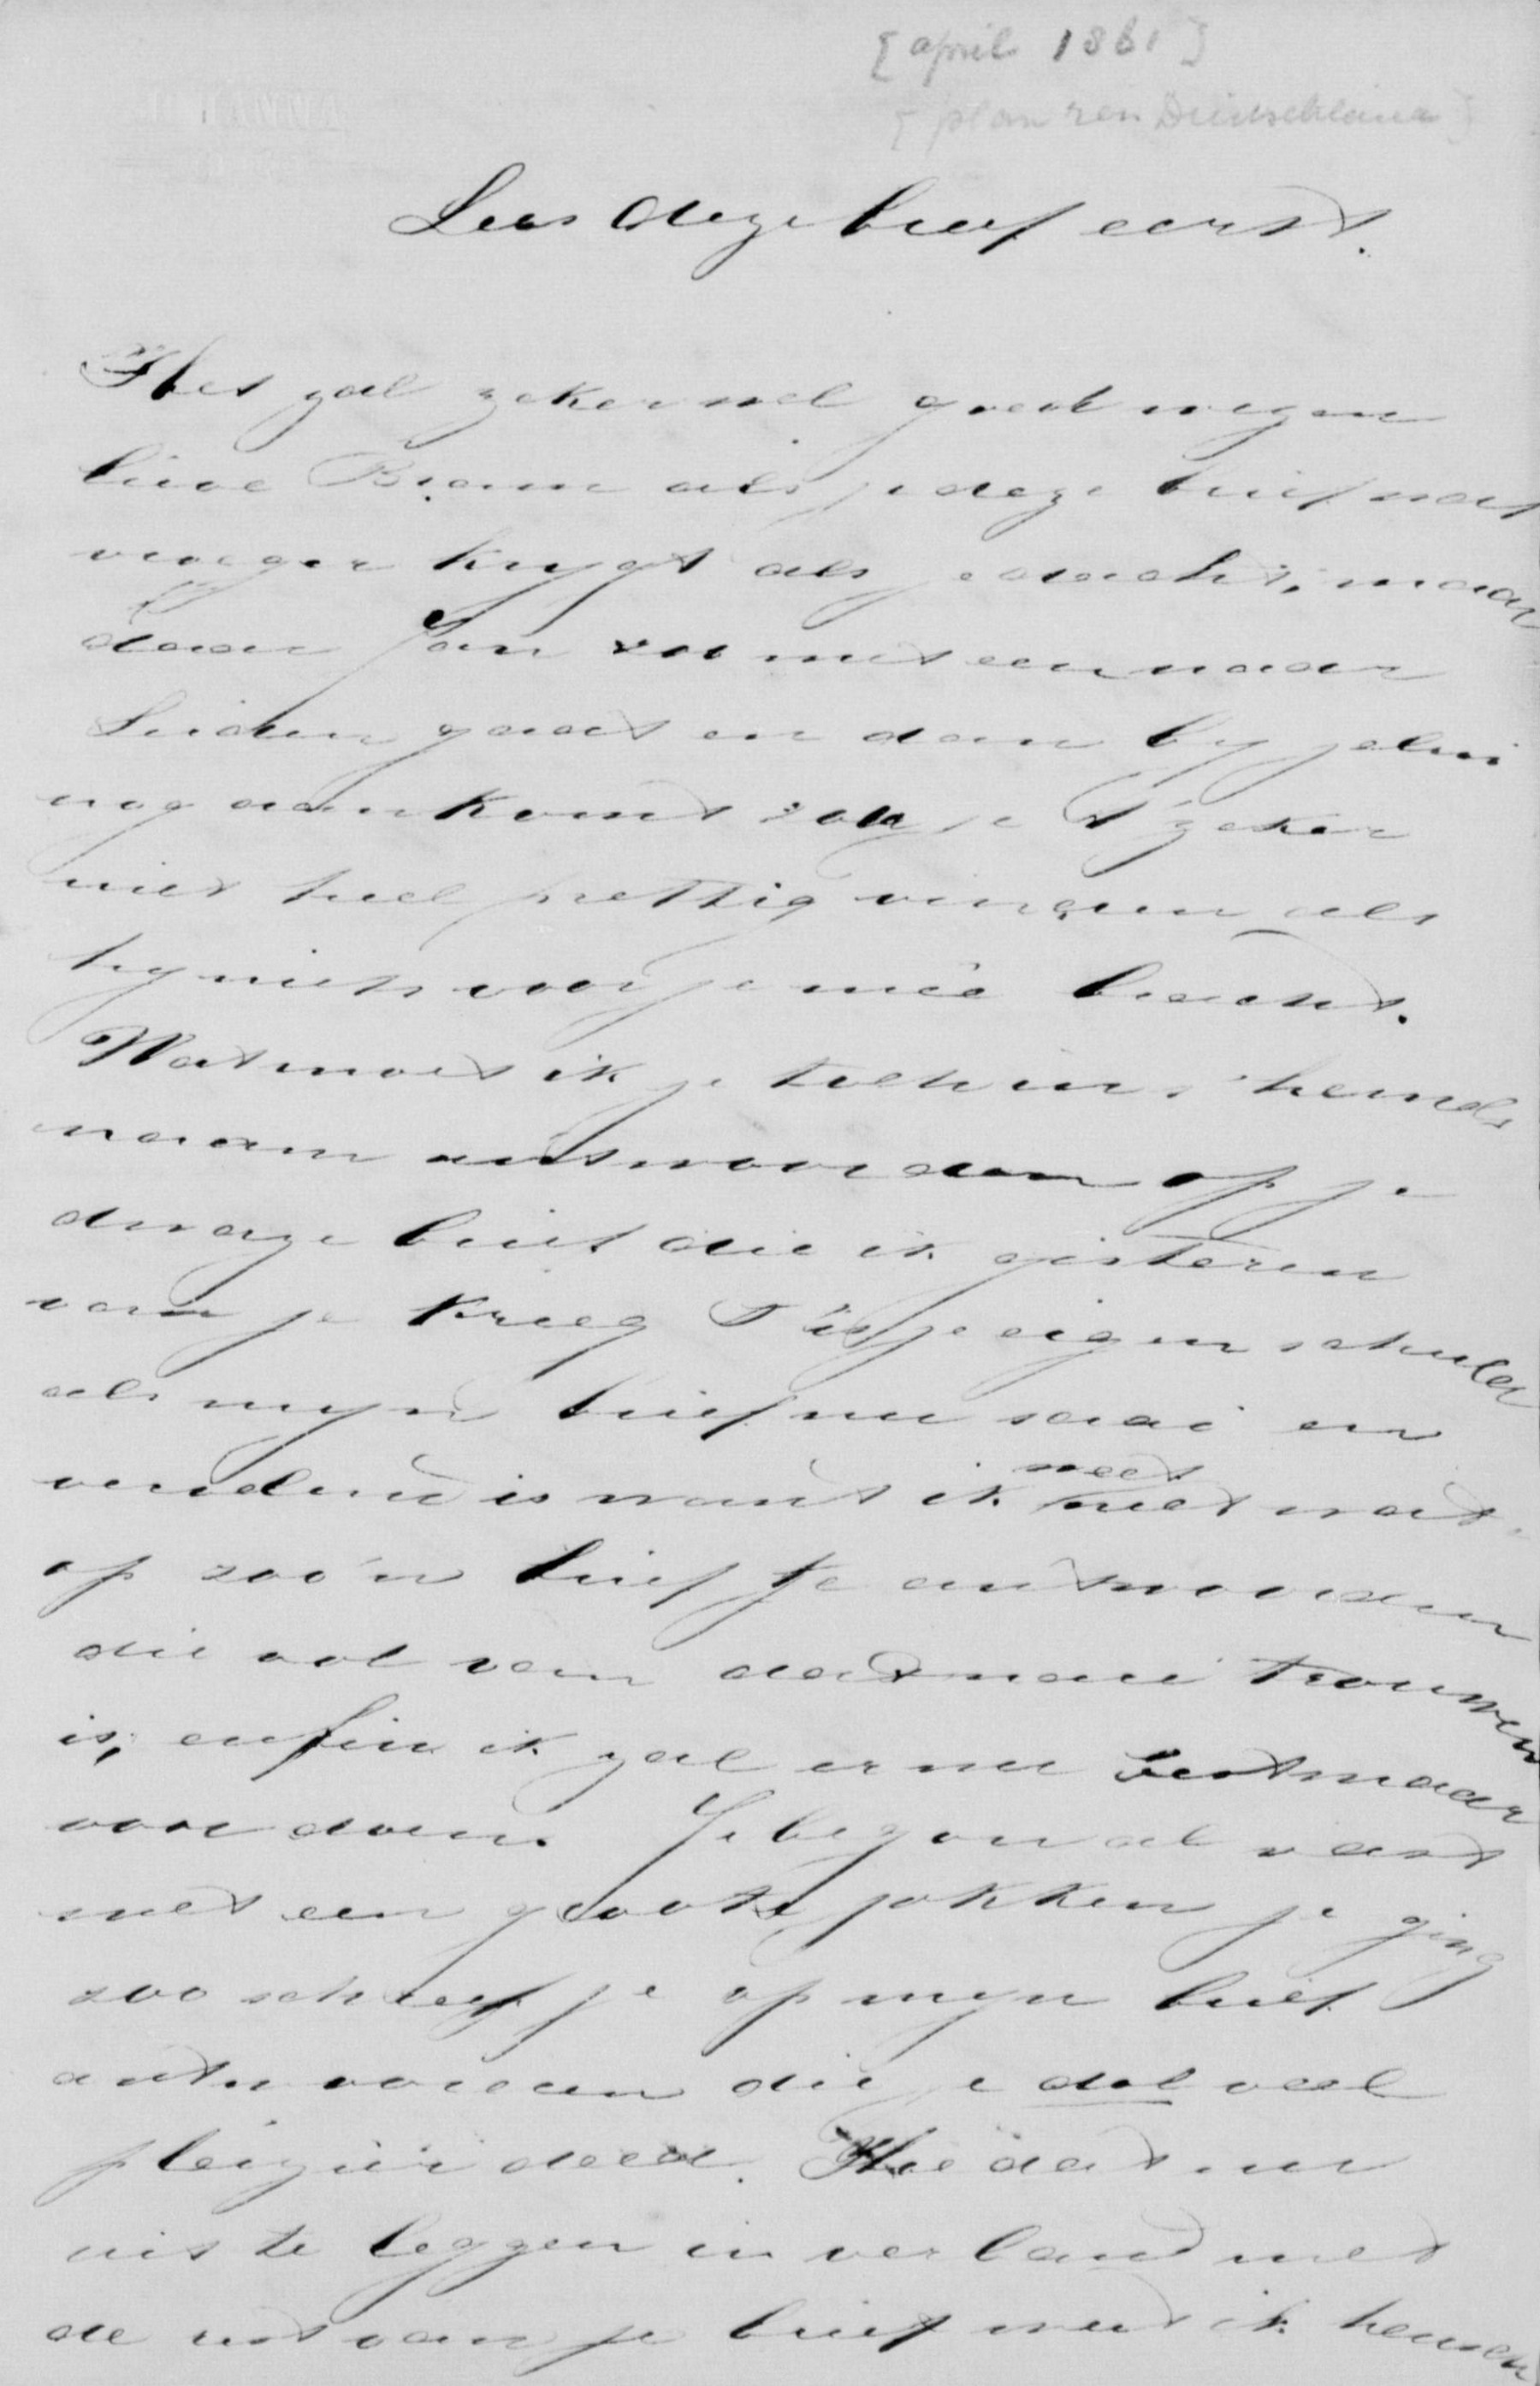 [april 1861]
[plan reis Duitschland]
Lees deze brief eerst.
Het zal zeker wel goed wezen
lieve Bram als je deze brief wat
vroeger krygt als je dacht, maar
daar Jan zoo met een naar
Leiden gaat en dan by jelui
nog aankomt zou je 't zeker
niet heel prettig vinden als
hy niets voor je meê bracht.
Wat moet ik je toch in 's hemels
naam antwoorden op je
dwaze brief die ik gisteren
van je kreeg 't is je eigen schuld
als myn brief nu saai en
vervelend is want ik weet niet wat
op zoo'n brief te antwoorden
die vol van aartsmani trouwen
is, enfin ik zal er nu best maar
voor doen. Je begon al vast
met een groote jokken je ging
zoo schreef je op myn brief
antwoorden die je dol veel
pleizier deed. Hoe dat nu
uit te leggen in verband met
de rest van je brief weet ik heusch